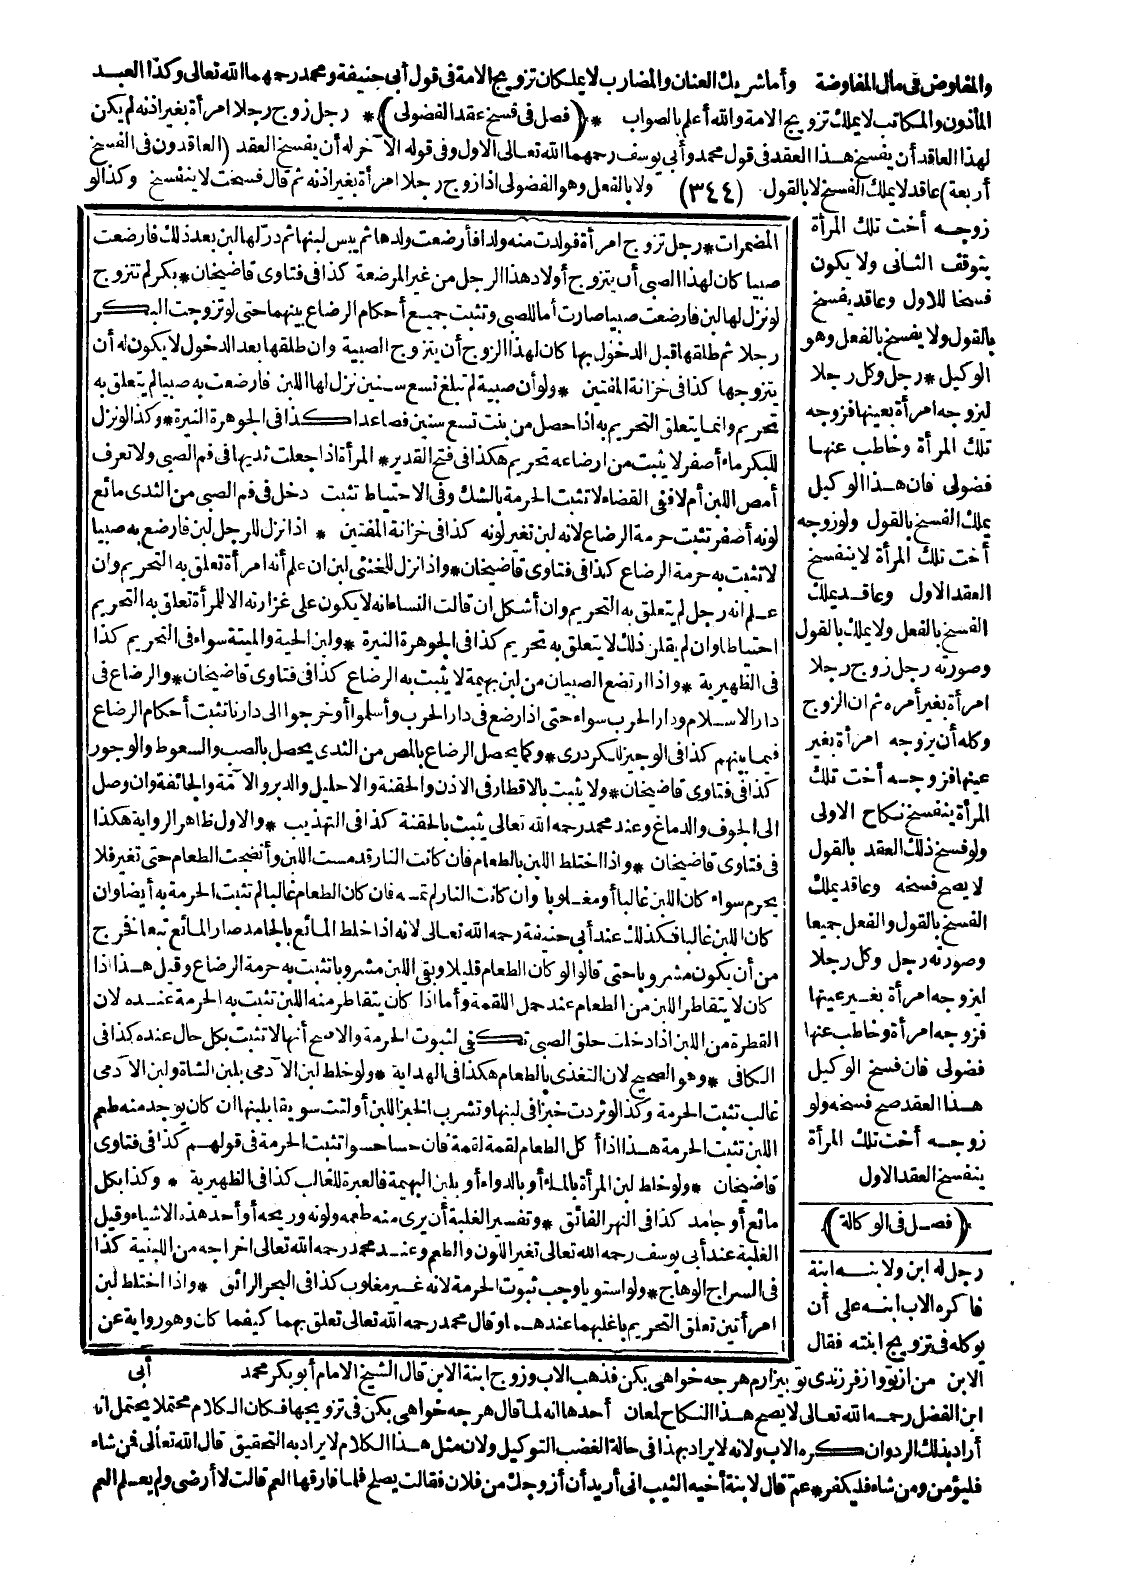 والمفاوض في مال المفاوضة وأما شريك العنان والمضارب لا يملكان تزويج الامة في قول أبي حنيفة ومحمد رحمهما الله تعالى وكذا العبد
المأذون والمكاتب لا يملك تزويج الامة والله أعلم بالصواب * (فصل في فسخ عقد الفضولى) * رجل زوج رجلا امرأة بغير اذنه لم يكن
لهذا العاقد أن يفسخ هذا العقد في قول محمد وأبي يوسف رحمهما الله تعالى الاول وفي قوله الآخر له أن يفسخ العقد (العاقدون في الفسخ
أربعة) عاقد لا يملك الفسخ لا بالقول (٣٤٤) ولا بالفعل وهو الفضولى اذا زوج رجلا امرأة بغير اذنه ثم قال فسخت لا ينفسخ وكذا لو
زوجه أخت تلك المرأة
يتوقف الثانى ولا يكون
فسخا للاول وعاقد يفسخ
بالقول ولا يفسخ بالفعل وهو
الوكيل * رجل وكل رجلا
ليزوجه امرأة بعينها فزوجه
تلك المرأة وخاطب عنها
فضولى فان هذا الوكيل
يملك الفسخ بالقول ولو زوجه
أخت تلك المرأة لا ينفسخ
العقد الاول وعاقد يملك
الفسخ بالفعل ولا يملك بالقول
وصورته رجل زوج رجلا
امرأة بغير أمره ثم ان الزوج
وكله أن يزوجه امرأة بغير
عينها فزوجه أخت تلك
المرأة ينفسخ نكاح الاولى
ولو فسخ ذلك العقد بالقول
لا يصح فسخه وعاقد يملك
الفسخ بالقول والفعل جميعا
وصورته رجل وكل رجلا
ليزوجه امرأة بغير عينها
فزوجه امرأة وخاطب عنها
فضولى فان فسخ الوكيل
هذا العقد صح فسخه ولو
زوجه أخت تلك المرأة
ينفسخ العقد الاول
(فصل في الوكالة)
رجل له ابن ولابنه ابنة
فاكره الاب ابنه على أن
يوكله في تزويج ابنته فقال
المضمرات * رجل تزوج امرأة فولدت منه ولدا فأرضعت ولدها ثم يبس لبنها ثم در لها لبن بعد ذلك فارضعت
صبيا كان لهذا الصبى أن يتزوج أولاد هذا الرجل من غير المرضعة كذا في فتاوى قاضيخان * بكر لم تتزوج
لو نزل لها لبن فارضعت صبيا صارت أما للصبى وتثبت جميع أحكام الرضاع بينهما حتى لو تزوجت البكر
رجلا ثم طلقها قبل الدخول بها كان لهذا الزوج أن يتزوج الصبية وان طلقها بعد الدخول لا يكون له أن
يتزوجها كذا في خزانة المفتين * ولو أن صبية لم تبلغ تسع سنين نزل لها اللبن فارضعت به صبيا لم يتعلق به
تحريم وانما يتعلق التحريم به اذا حصل من بنت تسع سنين فصاعدا كذا في الجوهرة النيرة * وكذا لو نزل
للبكر ماء أصفر لا يثبت من ارضاعه تحريم هكذا في فتح القدير * المرأة اذا جعلت ثديها في فم الصبى ولا تعرف
أمص اللبن أم لا ففي القضاء لا تثبت الحرمة بالشك وفي الاحتياط تثبت دخل في فم الصبى من الثدى مائع
لونه أصفر تثبت حرمة الرضاع لانه لبن تغير لونه كذا في خزانة المفتين * اذا نزل للرجل لبن فارضع به صبيا
لا تثبت به حرمة الرضاع كذا في فتاوى قاضيخان * واذا نزل للخنثى لبن ان علم أنه امرأة تعلق به التحريم وان
علم انه رجل لم يتعلق به التحريم وان أشكل ان قالت النساء انه لا يكون على غزارته الا للمرأة تعلق به التحريم
احتياطا وان لم يقلن ذلك لا يتعلق به تحريم كذا في الجوهرة النيرة * ولبن الحية والميتة سواء في التحريم كذا
في الظهيرية * واذا ارتضع الصبيان من لبن بهيمة لا يثبت به الرضاع كذا في فتاوى قاضيخان * والرضاع في
دار الاسلام ودار الحرب سواء حتى اذا رضع في دار الحرب وأسلموا أو خرجوا الى دارنا تثبت أحكام الرضاع
فيما بينهم كذا في الوجيز للكردرى * وكما يحصل الرضاع بالمص من الثدى يحصل بالصب والسعوط والوجور
كذا في فتاوى قاضيخان * ولا يثبت بالاقطار في الاذن والحقنة والاحليل والدبر والآمة والجائفة وان وصل
الى الجوف والدماغ وعند محمد رحمه الله تعالى يثبت بالحقنة كذا في التهذيب * والاول ظاهر الرواية هكذا
في فتاوى قاضيخان * واذا اختلط اللبن بالطعام فان كانت النار قد مست اللبن وأنضجت الطعام حتى تغير فلا
يحرم سواء كان اللبن غالبا أو مغلوبا وان كانت النار لم تمسه فان كان الطعام غالبا لم تثبت الحرمة به أيضا وان
كان اللبن غالبا فكذلك عند أبي حنيفة رحمه الله تعالى لانه اذا خلط المائع بالجامد صار المائع تبعا فخرج
من أن يكون مشروبا حتى قالوا لو كان الطعام قليلا وبقى اللبن مشروبا تثبت به حرمة الرضاع وقيل هذا اذا
كان لا يتقاطر اللبن من الطعام عند حمل اللقمة وأما اذا كان يتقاطر منه اللبن تثبت به الحرمة عنده لان
القطرة من اللبن اذا دخلت حلق الصبى تكفى لثبوت الحرمة والاصح أنها لا تثبت بكل حال عنده كذا في
الكافى * وهو الصحيح لان التغذى بالطعام هكذا في الهداية * ولو خلط لبن الآدمى بلبن الشاة ولبن الآدمى
غالب تثبت الحرمة وكذا لو ثردت خبزا في لبنها وتشرب الخبز اللبن أو لتت سويقا بلبنها ان كان يوجد منه طعم
اللبن تثبت الحرمة هذا اذا أكل الطعام لقمة لقمة فان حسا حسوا تثبت الحرمة في قولهم كذا في فتاوى
قاضيخان * ولو خلط لبن المرأة بالماء أو بالدواء أو بلبن البهيمة فالعبرة للغالب كذا في الظهيرية * وكذا بكل
مائع أو جامد كذا في النهر الفائق * وتفسير الغلبة أن يرى منه طعمه ولونه وريحه أو أحد هذه الاشياء وقيل
الغلبة عند أبي يوسف رحمه الله تعالى تغير اللون والطعم وعند محمد رحمه الله تعالى اخراجه من اللبنية كذا
في السراج الوهاج * ولو استويا وجب ثبوت الحرمة لانه غير مغلوب كذا في البحر الرائق * واذا اختلط لبن
امرأتين تعلق التحريم باغلبهما عندهما وقال محمد رحمه الله تعالى تعلق بهما كيفما كان وهو رواية عن
أبى
الابن من ازتو واز فرزندى تو بيزارم هرجه خواهى بكن فذهب الاب وزوج ابنة الابن قال الشيخ الامام أبو بكر محمد
ابن الفضل رحمه الله تعالى لا يصح هذا النكاح لمعان أحدها انه لما قال هرجه خواهى بكن في تزويجها فكان الكلام محتملا يحتمل انه
أراد بذلك الرد وان كره الاب ولانه لا يراد بهذا في حالة الغضب التوكيل ولان مثل هذا الكلام لا يراد به التحقيق قال الله تعالى فمن شاء
فليؤمن ومن شاء فليكفر * عم قال لابنة أخيه الثيب انى أريد أن أزوجك من فلان فقالت يصلح فلما فارقها العم قالت لا أرضى ولم يعلم العم